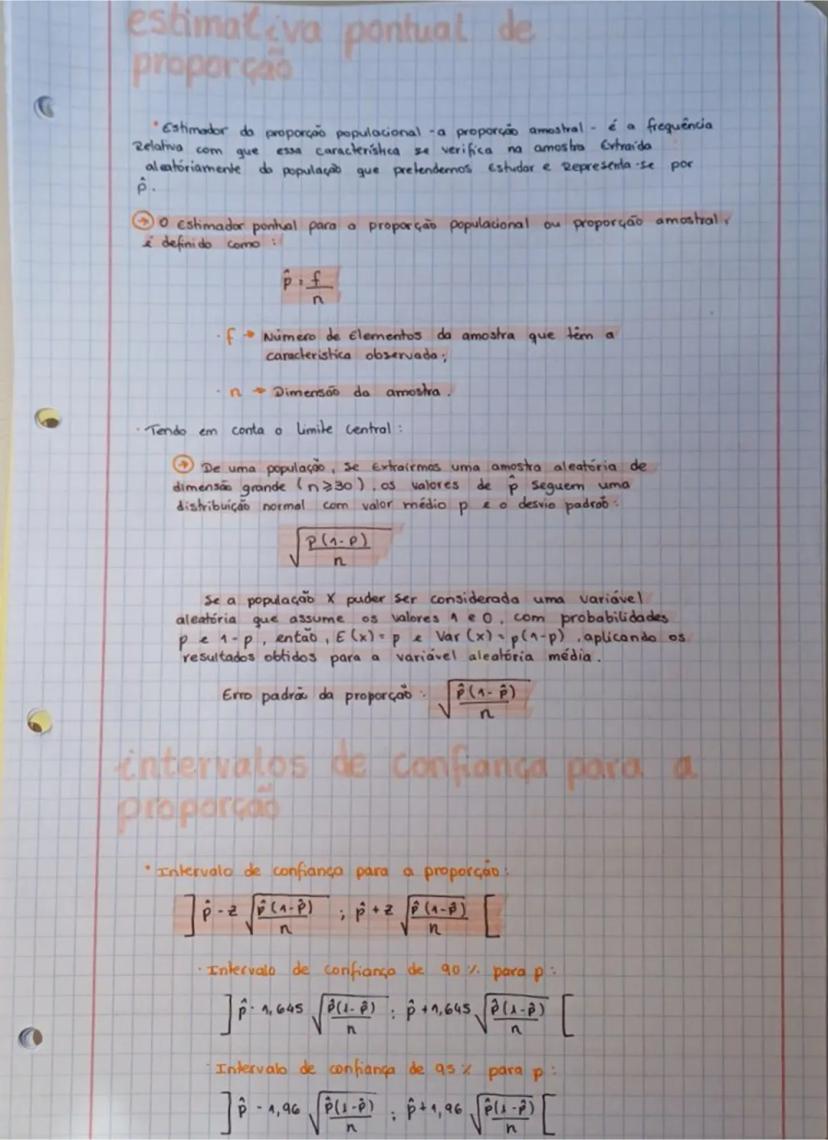 estimativa pontual de
proporção
• Estimador da proporção populacional - a proporção amostral - é a frequência
Relativa com que essa característica se verifica na amostra Extraída
aleatóriamente da população que pretendemos Estudar e Representa-se por
p̂.
→ O Estimador pontual para a proporção populacional ou proporção amostral,
é definido como :
p̂ = f/n
· f → Número de Elementos da amostra que têm a
característica observada;
· n → Dimensão da amostra.
· Tendo em conta o Limite Central :
→ De uma população, se Extrairmos uma amostra aleatória de
dimensão grande (n ≥ 30), os valores de p̂ seguem uma
distribuição normal com valor médio p e o desvio padrão :
√(p(1-p)/n)
Se a população X puder ser considerada uma variável
aleatória que assume os valores 1 e 0, com probabilidades
p e 1-p, então, E(x) = p e Var(x) = p(1-p), aplicando os
resultados obtidos para a variável aleatória média.
Erro padrão da proporção : √(p̂(1-p̂)/n)
intervalos de confiança para a
proporção
• Intervalo de confiança para a proporção:
]p̂ - z √(p̂(1-p̂)/n) ; p̂ + z √(p̂(1-p̂)/n)[
· Intervalo de confiança de 90 % para p :
]p̂ - 1,645 √(p̂(1-p̂)/n) ; p̂ + 1,645 √(p̂(1-p̂)/n)[
· Intervalo de confiança de 95 % para p :
]p̂ - 1,96 √(p̂(1-p̂)/n) ; p̂ + 1,96 √(p̂(1-p̂)/n)[